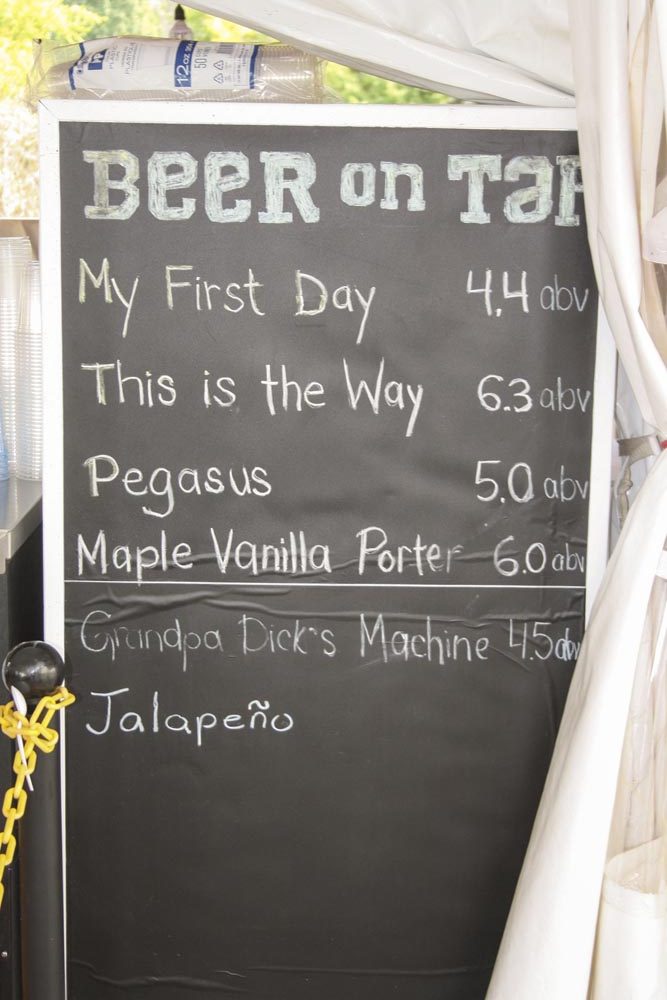 12 oz
50
BEER on TAP
My First Day 4.4 abv
This is the Way 6.3 abv
Pegasus 5.0 abv
Maple Vanilla Porter 6.0 abv
Grandpa Dick's Machine 4.5 abv
Jalapeño